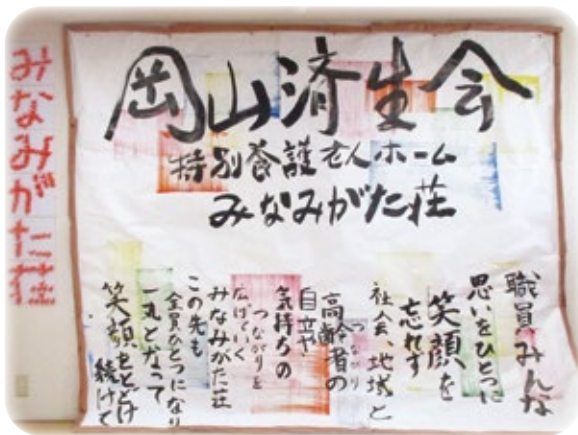 みなみがた荘
岡山済生会
特別養護老人ホーム
みなみがた荘
職員みんな
思いをひとつに
笑顔を
忘れず
社会、地域と
つながり
高齢者の
自立や
気持ちの
つながりを
広げていく
みなみがた荘
この先も
全員ひとつになり
一丸となって
笑顔をとどけ
続けて